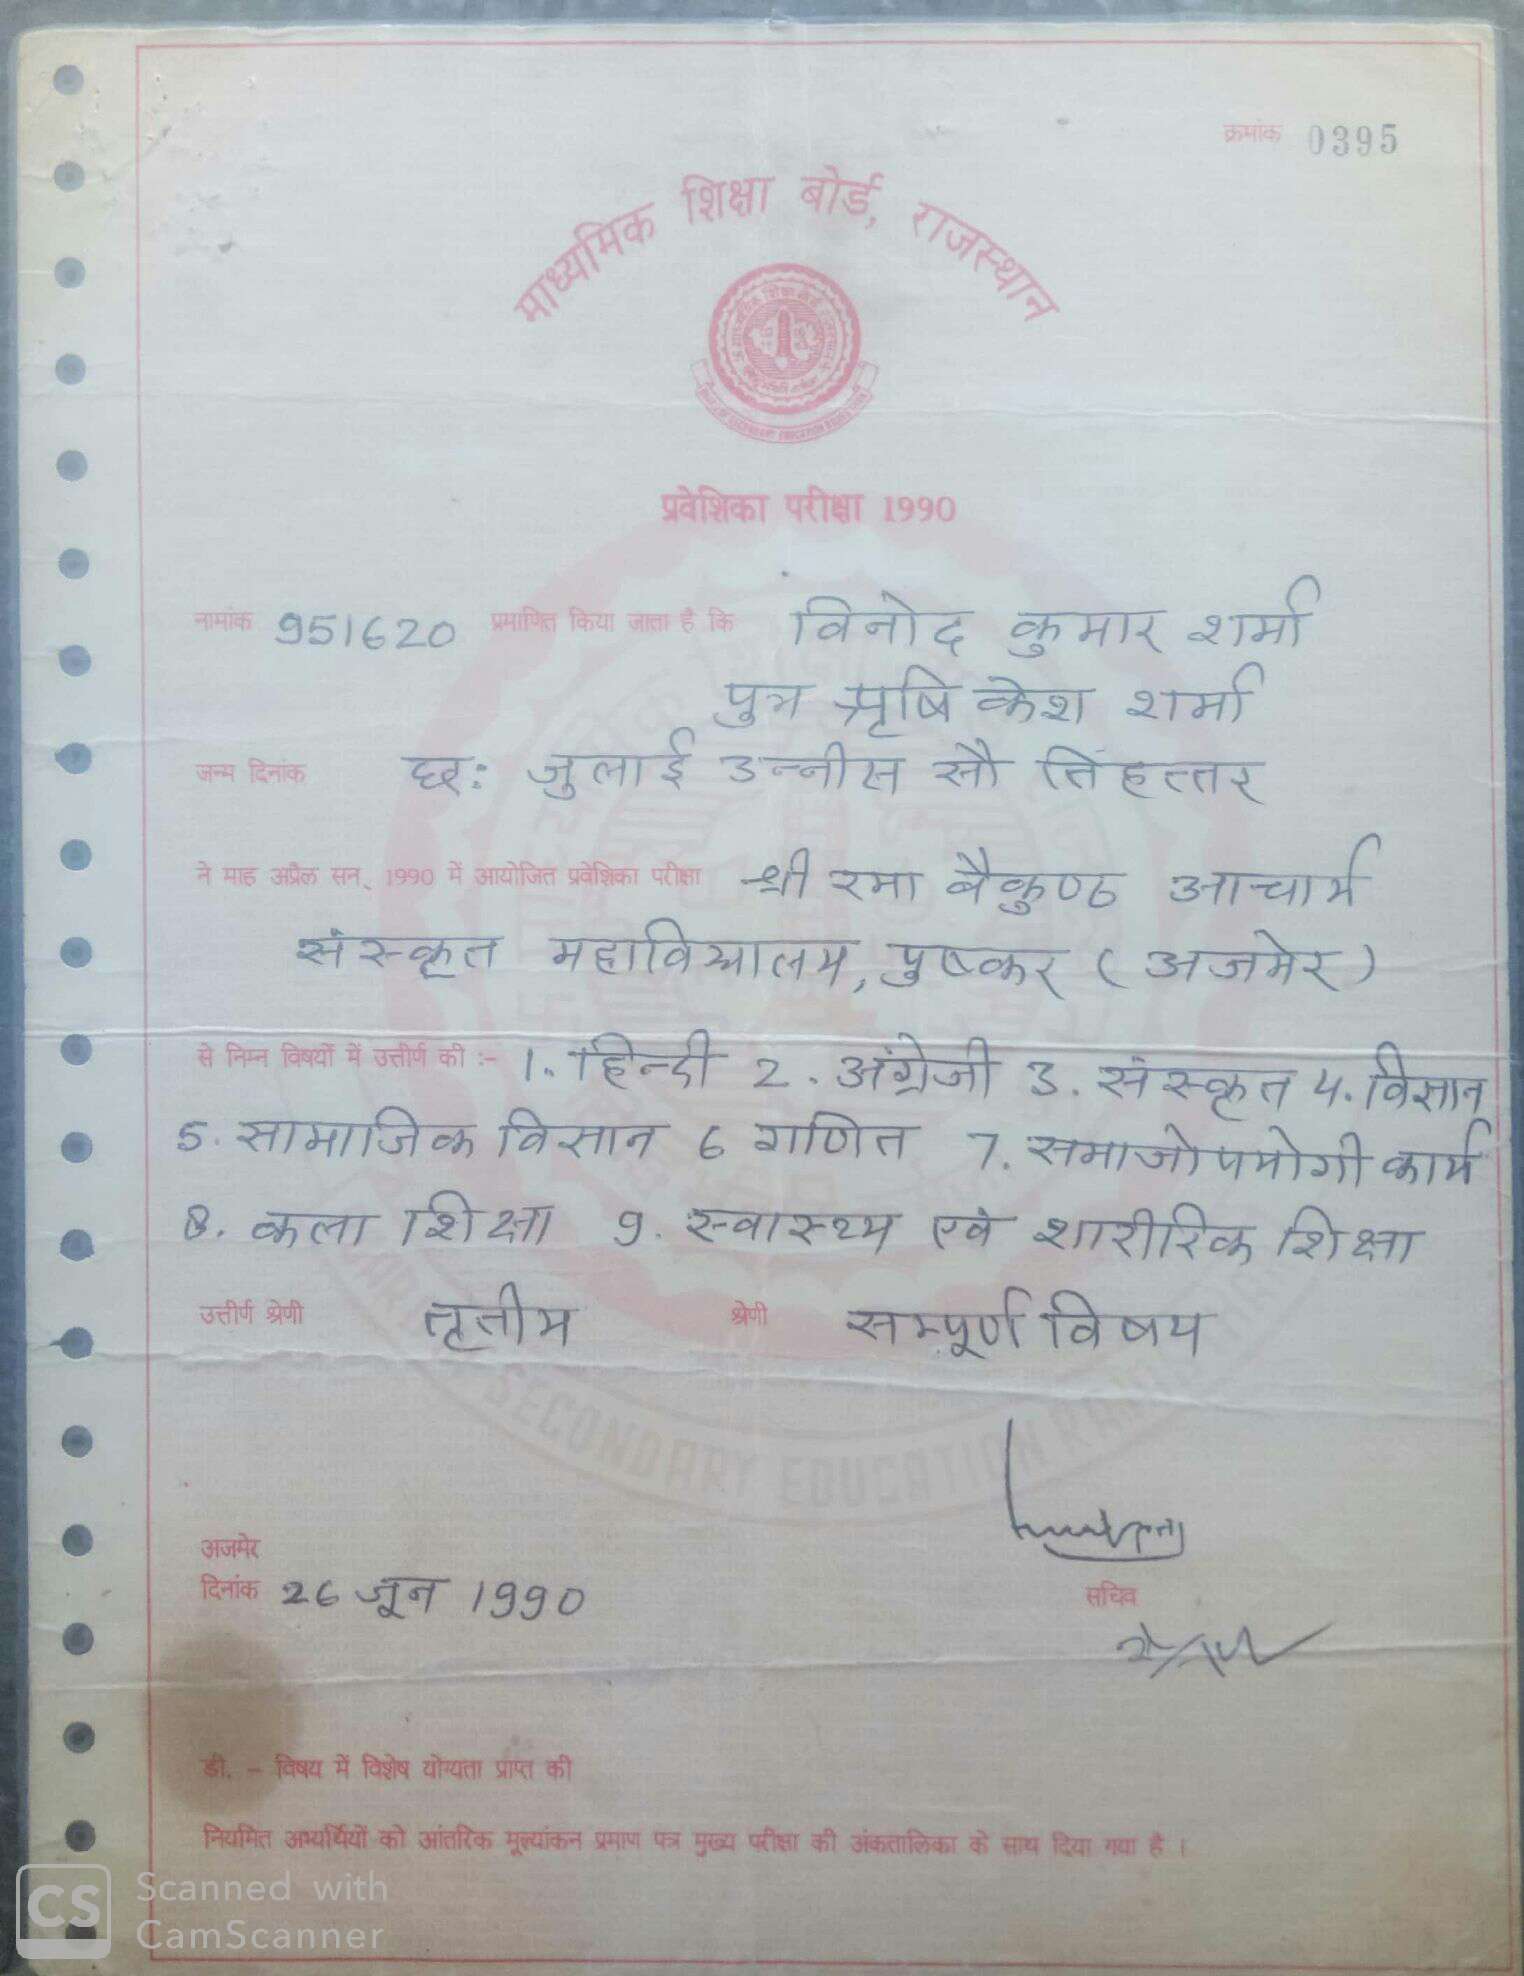 क्रमांक 0395
माध्यमिक शिक्षा बोर्ड, राजस्थान
प्रवेशिका परीक्षा 1990
नामांक 951620 प्रमाणित किया जाता है कि विनोद कुमार शर्मा
पुत्र ऋषि केश शर्मा
जन्म दिनांक छः जुलाई उन्नीस सौ तिहत्तर
ने माह अप्रैल सन्, 1990 में आयोजित प्रवेशिका परीक्षा श्री रमा वैकुण्ठ आचार्य
संस्कृत महाविद्यालय, पुष्कर (अजमेर)
से निम्न विषयों में उत्तीर्ण की :- 1. हिन्दी 2. अंग्रेजी 3. संस्कृत 4. विज्ञान
5. सामाजिक विज्ञान 6 गणित 7. समाजोपयोगी कार्य
8. कला शिक्षा 9. स्वास्थ्य एवं शारीरिक शिक्षा
उत्तीर्ण श्रेणी तृतीय श्रेणी सम्पूर्ण विषय
SECONDARY EDUCATION
अजमेर
दिनांक 26 जून 1990
सचिव
डी. - विषय में विशेष योग्यता प्राप्त की
नियमित अभ्यर्थियों को आंतरिक मूल्यांकन प्रमाण पत्र मुख्य परीक्षा की अंकतालिका के साथ दिया गया है ।
CS Scanned with
CamScanner